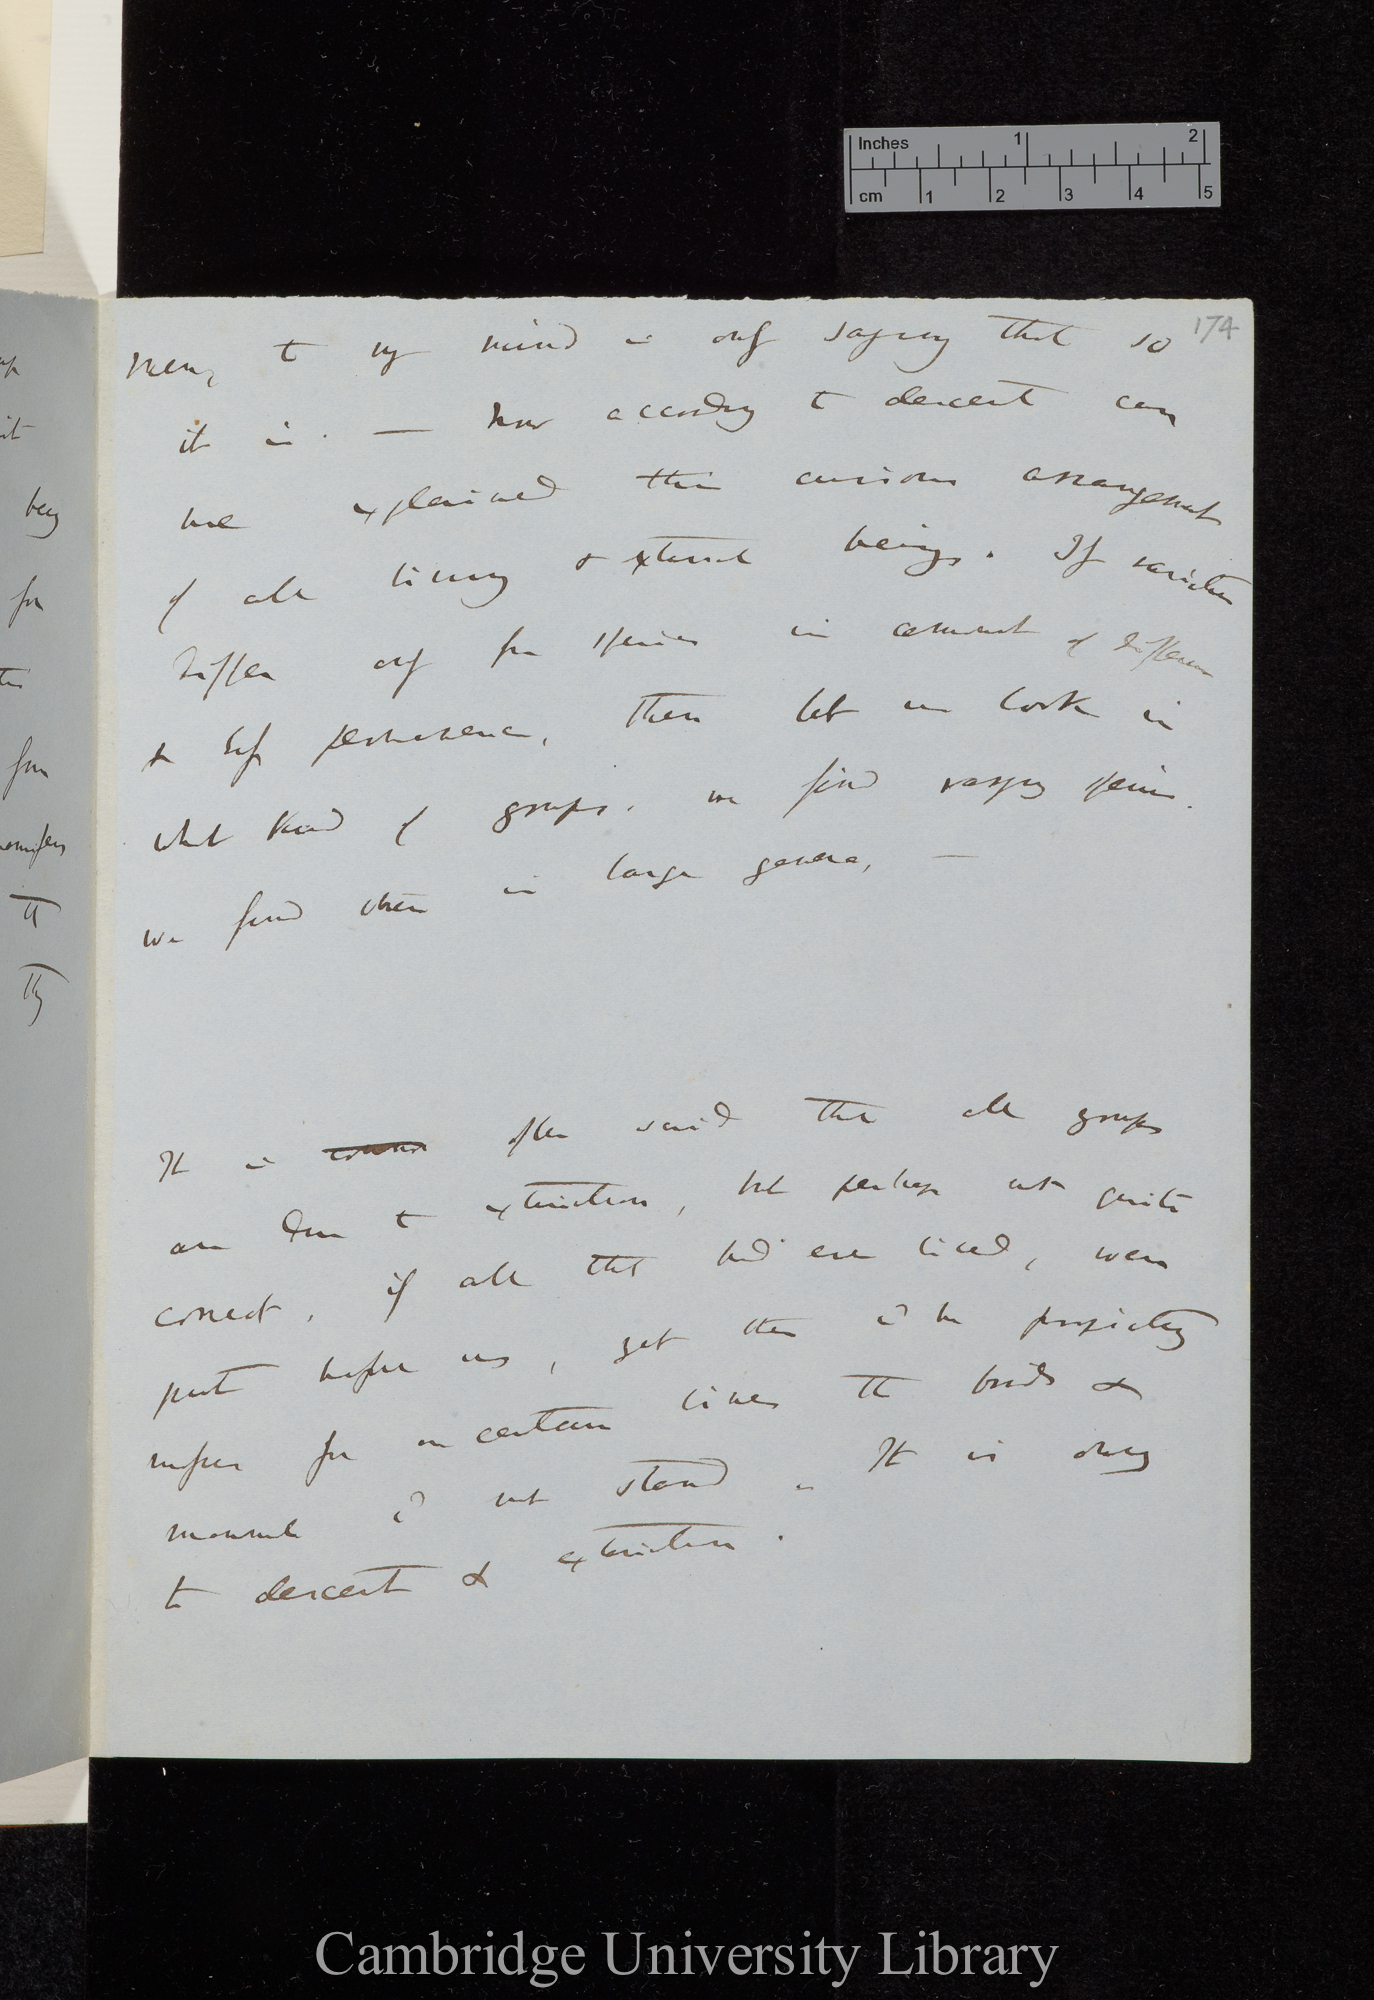 Inches 1 2
cm 1 2 3 4 5
174
to my mind is only saying that so
it is. — how according to descent can
we explained this curious arrangement
of all living & extinct beings. If varieties
differ only from species in amount of difference
& less permanence, then let us look in
what kind of groups. we find varying species.
we find them in large genera, —
It is common often said that all groups
are due to extinction, but perhaps not quite
correct, if all that had ever lived, were
put before us, yet there wd be propriety
for certain lines th birds &
mammals wd not stand It is owing
to descent & extinction.
being
for
from
th
they
Cambridge University Library